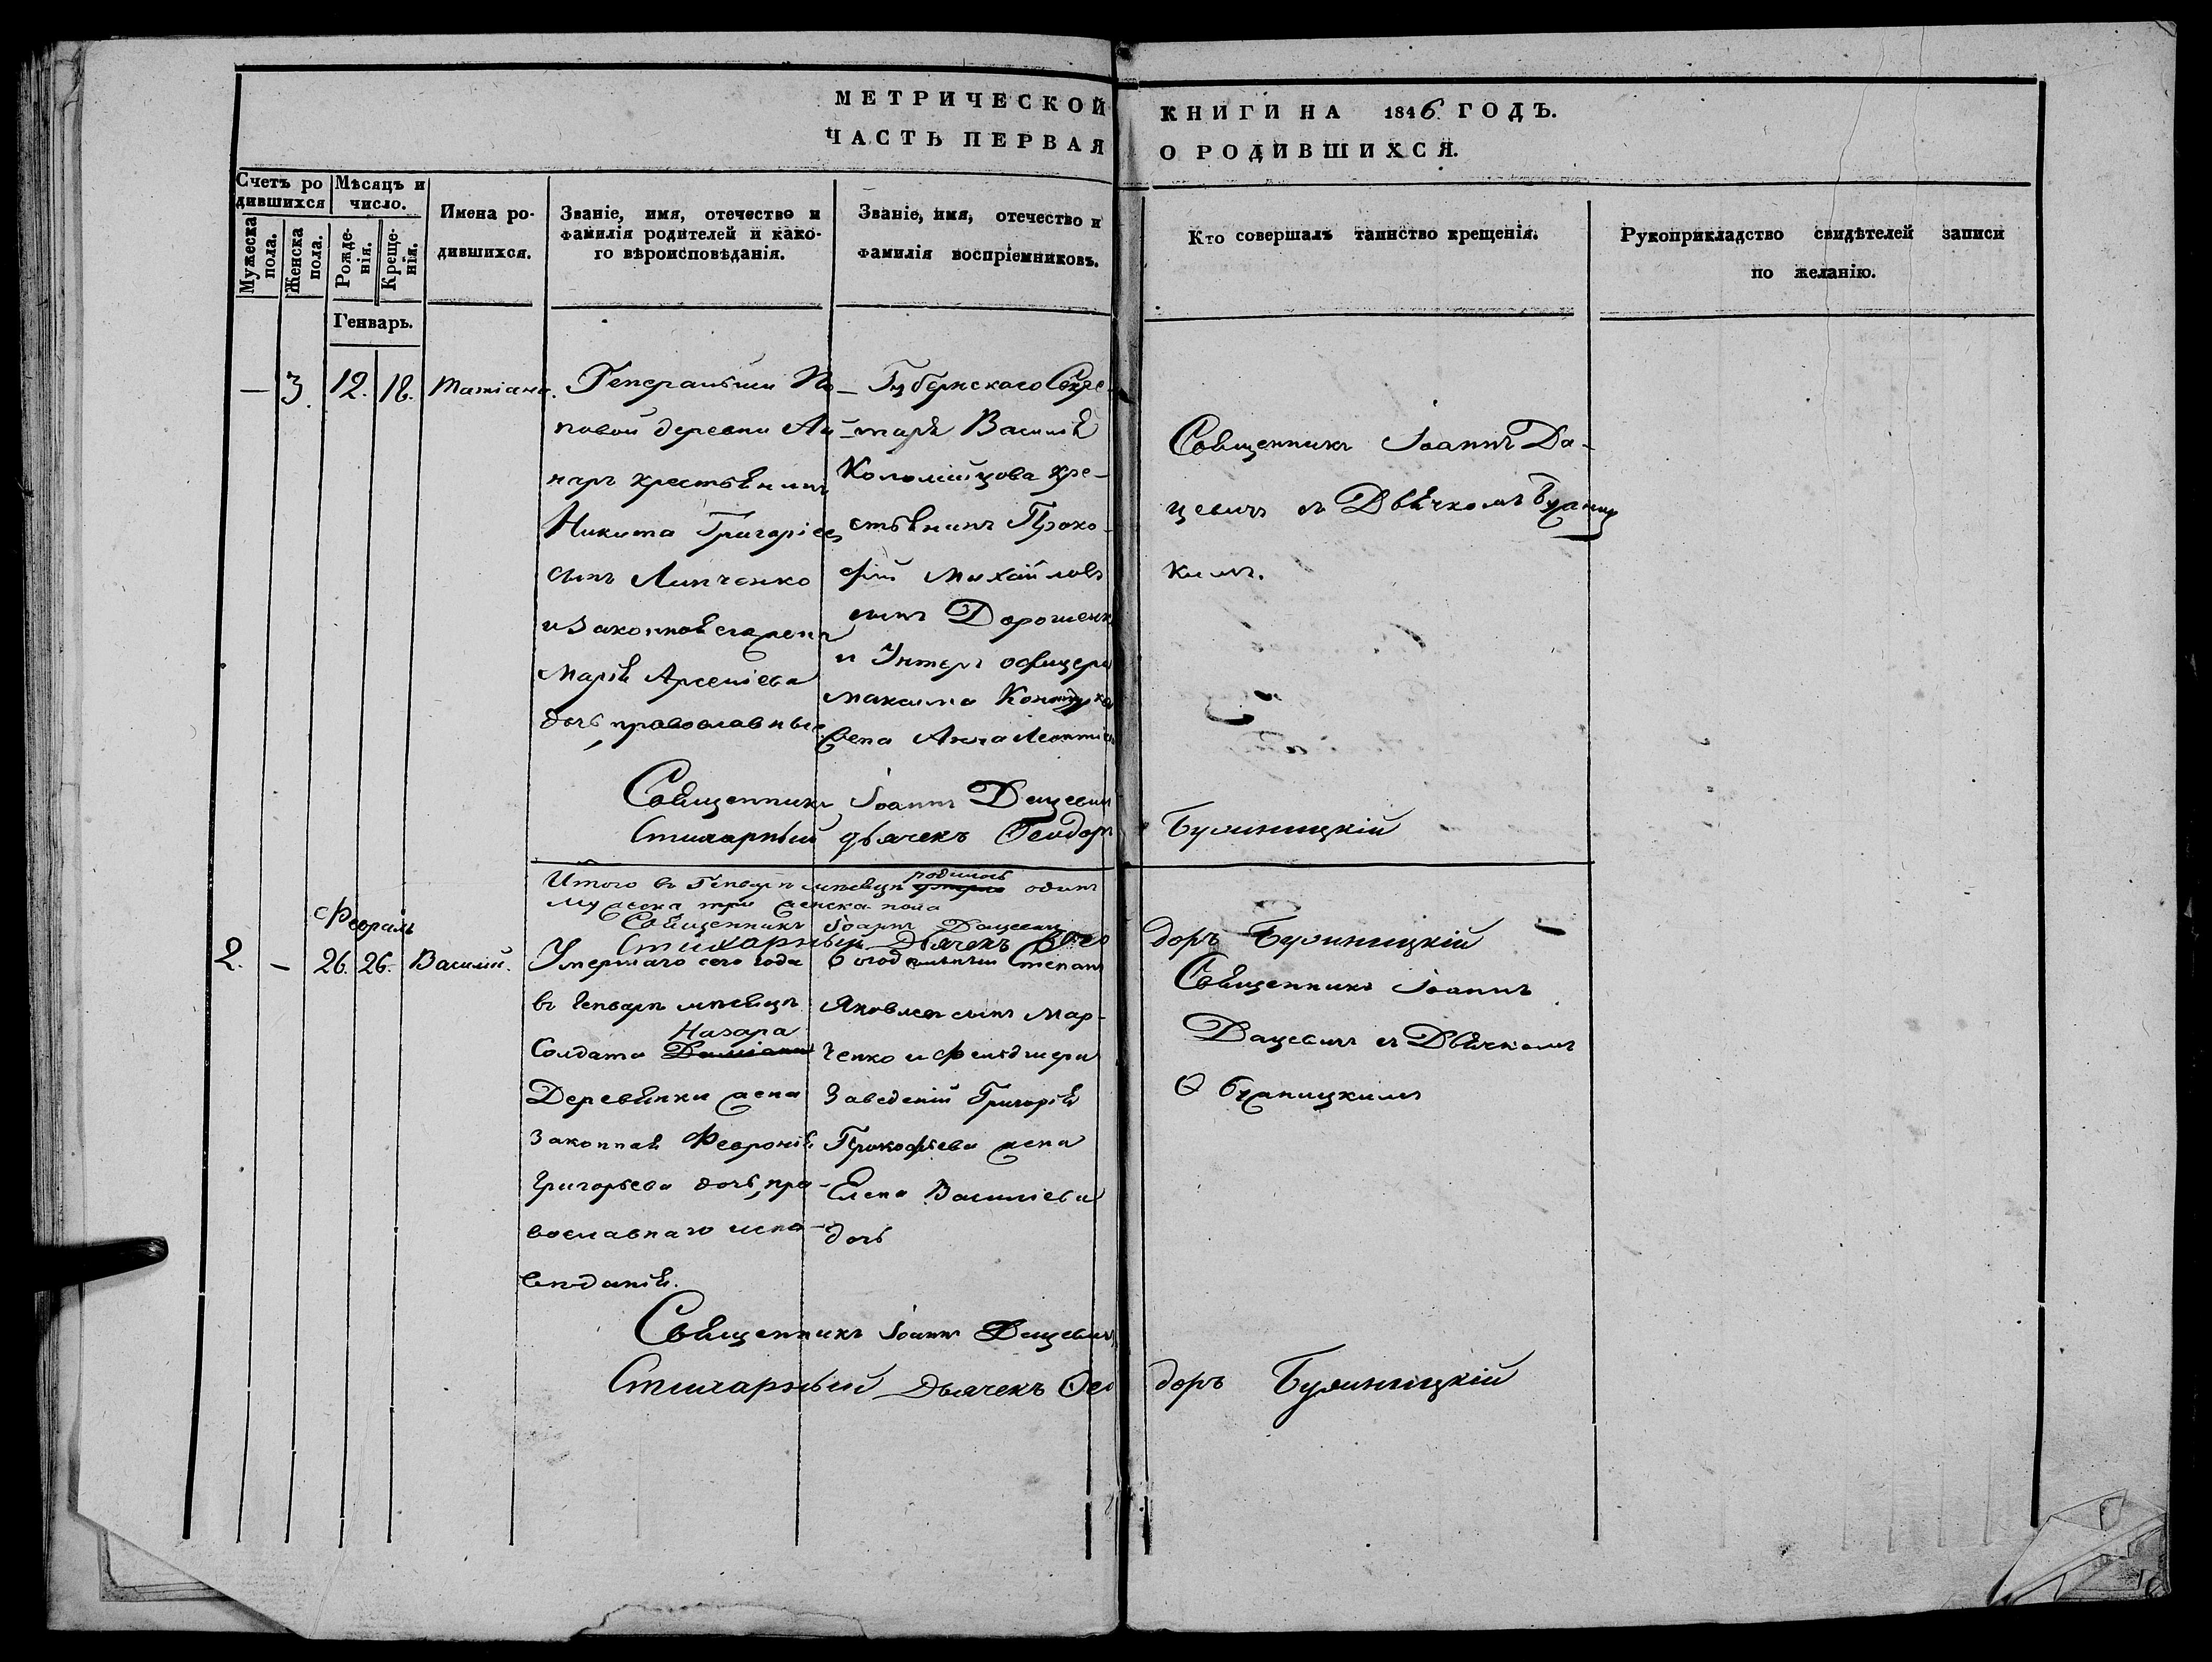 МЕТРИЧЕСКОЙ КНИГИ НА 1846 ГОДЪ.
ЧАСТЬ ПЕРВАЯ О РОДИВШИХСЯ.
Счетъ ро
дившихся
Мужеска
пола.
Женска
пола.
Мѣсяцъ и
число.
Рожде-
нія.
Креще-
нія.
Имена ро-
дившихся.
Званіе, имя, отечество и
фамилія родителей и како-
го вѣроисповѣданія.
Званіе, имя, отечество и
фамилія воспріемниковъ.
Кто совершалъ таинство крещенія.
Рукоприкладство свидѣтелей записи
по желанію.
Генварь.
— 3. 12. 18. Татіана.
Генеральши По-
повой деревни
крестьянинъ
Никита Григоріевъ
сынъ Липченко
и законная его жена
Марія Арсеніева
дочь, православные.
Губернскаго Секре-
таря Василія
Коломійцова кре-
стьянинъ Проко-
фій Михайловъ
сынъ Дорошенко
и Унтеръ офицера
Максима
жена Анна Леонтіева
Священникъ Іоаннъ Да-
цевичъ съ Дьячкомъ
кимъ.
Священникъ Іоаннъ Дацевичъ
Стихарный дьячекъ Ѳеодоръ Булиницкій
Итого въ Генварѣ мѣсяцѣ родилось одинъ
мужеска три женска пола
Священникъ Іоаннъ Дацевичъ
Стихарный Дьячекъ Ѳео доръ Булиницкій
Февраль
2. — 26. 26. Василій.
Умершаго сего года
въ Генварѣ мѣсяцѣ
Назара
Солдата Даміана
Деревянки жена
Законная Февронія
Григорьева дочь, пра-
вославнаго испо-
вѣданія.
Богодѣльный Степанъ
Яковлевъ сынъ Мар-
ченко и Фельдшера
Заведеній Григорія
Прокофьева жена
Елена Василіева
дочь
Священникъ Іоаннъ
Дацевичъ съ Дьячкомъ
Ѳ
Священникъ Іоаннъ Дацевичъ
Стихарный Дьячекъ Ѳео доръ Булиницкій